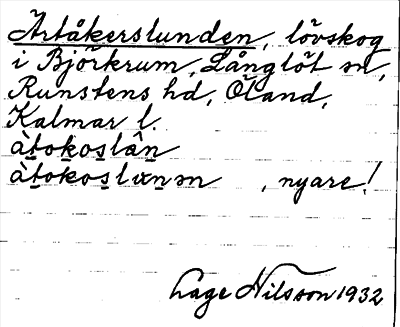 Ärtåkerslunden, lövskog
i Björkrum, Långlöt sn,
Runstens hd, Öland,
Kalmar l.
àt̲ok̲os̲lân̲
àt̲ok̲os̲lɑn̲ən , nyare!
Lage Nilsson 1932